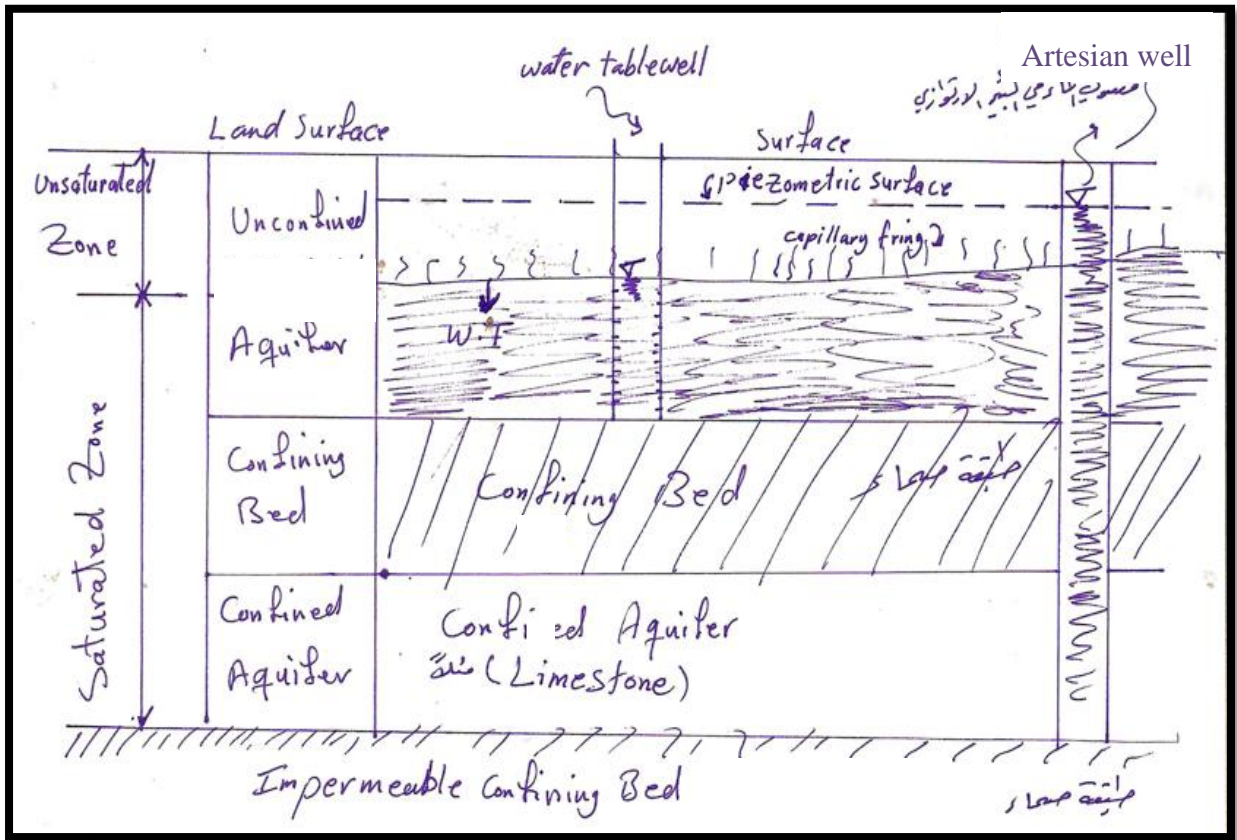 Artesian well
water tablewell
منسوب الماء في البئر الارتوازي
Land Surface
Surface
Unsaturated
Zone
Piezometric Surface
Unconfined
capillary fring
Aquifer
W.T
Saturated Zone
Confining
Bed
Confining Bed
طبقة صماء
Confined
Aquifer
Confi ed Aquifer
(Limestone)
Impermeable Confining Bed
طبقة صماء